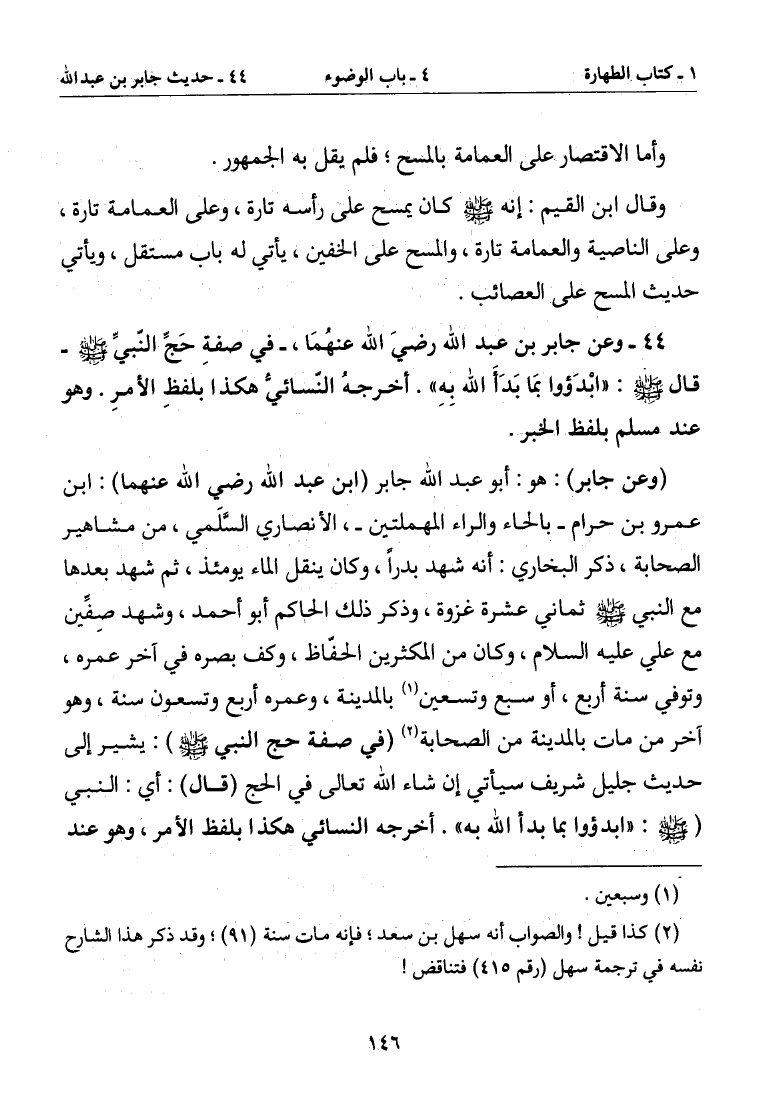 ١ ـ كتاب الطهارة ٤ ـ باب الوضوء ٤٤ ـ حديث جابر بن عبدالله
وأما الاقتصار على العمامة بالمسح ؛ فلم يقل به الجمهور .
وقال ابن القيم : إنه ﷺ كان يمسح على رأسه تارة ، وعلى العمامة تارة ،
وعلى الناصية والعمامة تارة ، والمسح على الخفين ، يأتي له باب مستقل ، ويأتي
حديث المسح على العصائب .
٤٤ ـ وعن جابر بن عبد الله رضيَ الله عنهُمَا ، ـ في صفةِ حَجِّ النّبيِّ ﷺ ـ
قال ﷺ : «ابْدَؤوا بمَا بَدَأَ الله بِهِ» . أخرجهُ النّسائيُّ هكذا بلفظِ الأمرِ . وهو
عند مسلم بلفظ الخبر .
(وعن جابر) : هو : أبو عبد الله جابر (ابن عبد الله رضي الله عنهما) : ابن
عمرو بن حرام ـ بالحاء والراء المهملتين ـ ، الأنصاري السَّلَمي ، من مشاهير
الصحابة ، ذكر البخاري : أنه شهد بدراً ، وكان ينقل الماء يومئذ ، ثم شهد بعدها
مع النبي ﷺ ثماني عشرة غزوة ، وذكر ذلك الحاكم أبو أحمد ، وشهد صِفِّين
مع علي عليه السلام ، وكان من المكثرين الحفّاظ ، وكف بصره في آخر عمره ،
وتوفي سنة أربع ، أو سبع وتسعين(١) بالمدينة ، وعمره أربع وتسعون سنة ، وهو
آخر من مات بالمدينة من الصحابة(٢) (في صفة حج النبي ﷺ) : يشير إلى
حديث جليل شريف سيأتي إن شاء الله تعالى في الحج (قال) : أي : النبي
(ﷺ : «ابدؤوا بما بدأ الله به» . أخرجه النسائي هكذا بلفظ الأمر ، وهو عند
(١) وسبعين .
(٢) كذا قيل ! والصواب أنه سهل بن سعد ؛ فإنه مات سنة (٩١) ؛ وقد ذكر هذا الشارح
نفسه في ترجمة سهل (رقم ٤١٥) فتناقض !
١٤٦